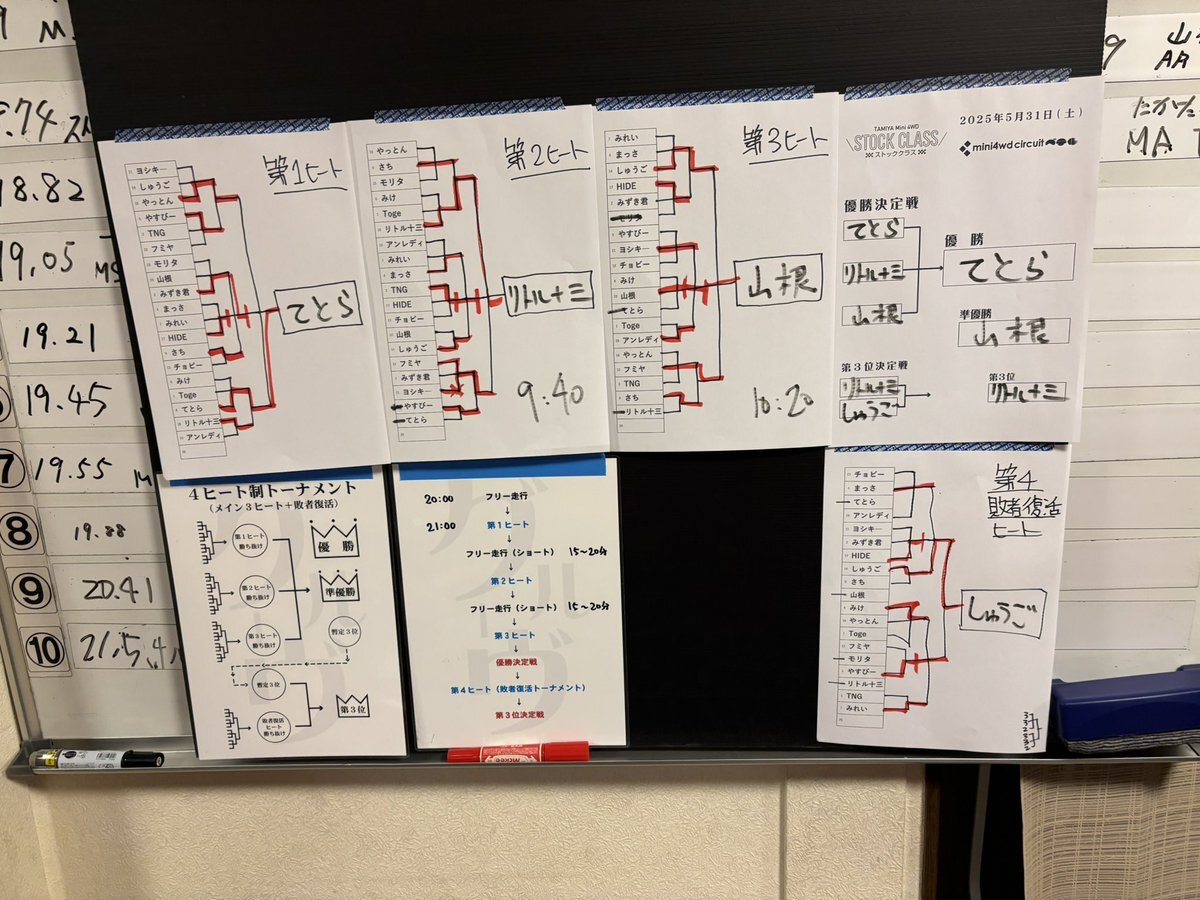 MS
18.82
19.05
MS
19.21
19.45
⑦
19.55
⑧
19.88
⑨
20.41
⑩
第1ヒート
ヨシキ―
しゅうご
やっとん
やすぴー
TNG
フミヤ
モリタ
山根
みずき君
まっさ
みれい
HIDE
さち
チョビー
みけ
Toge
てとら
リトル十三
アンレディ
てとら
第2ヒート
やっとん
さち
モリタ
みけ
Toge
リトル十三
アンレディ
みれい
まっさ
TNG
HIDE
チョビー
山根
しゅうご
フミヤ
みずき君
ヨシキ―
やすぴー
てとら
リトル十三
9:40
第3ヒート
みれい
まっさ
しゅうご
HIDE
みずき君
モリタ
やすぴー
ヨシキ―
チョビー
みけ
山根
てとら
Toge
アンレディ
やっとん
フミヤ
TNG
さち
リトル十三
山根
10:20
2025年5月31日(土)
TAMIYA Mini 4WD
STOCK CLASS
ストッククラス
mini4wd circuit
優勝決定戦
てとら
リトル十三
山根
優 勝
てとら
準優勝
山根
第3位決定戦
リトル十三
しゅうご
第3位
リトル十三
4ヒート制トーナメント
(メイン3ヒート+敗者復活)
第1ヒート
勝ち抜け
第2ヒート
勝ち抜け
第3ヒート
勝ち抜け
優 勝
準優勝
暫定3位
暫定3位
敗者復活
ヒート
勝ち抜け
第3位
20:00 フリー走行
↓
21:00 第1ヒート
↓
フリー走行(ショート) 15〜20分
↓
第2ヒート
↓
フリー走行(ショート) 15〜20分
↓
第3ヒート
↓
優勝決定戦
↓
第4ヒート(敗者復活トーナメント)
↓
第3位決定戦
第4
敗者復活
ヒート
チョビー
まっさ
てとら
アンレディ
ヨシキ―
みずき君
HIDE
しゅうご
さち
山根
みけ
やっとん
Toge
フミヤ
モリタ
やすぴー
リトル十三
TNG
みれい
しゅうご
AR
MA